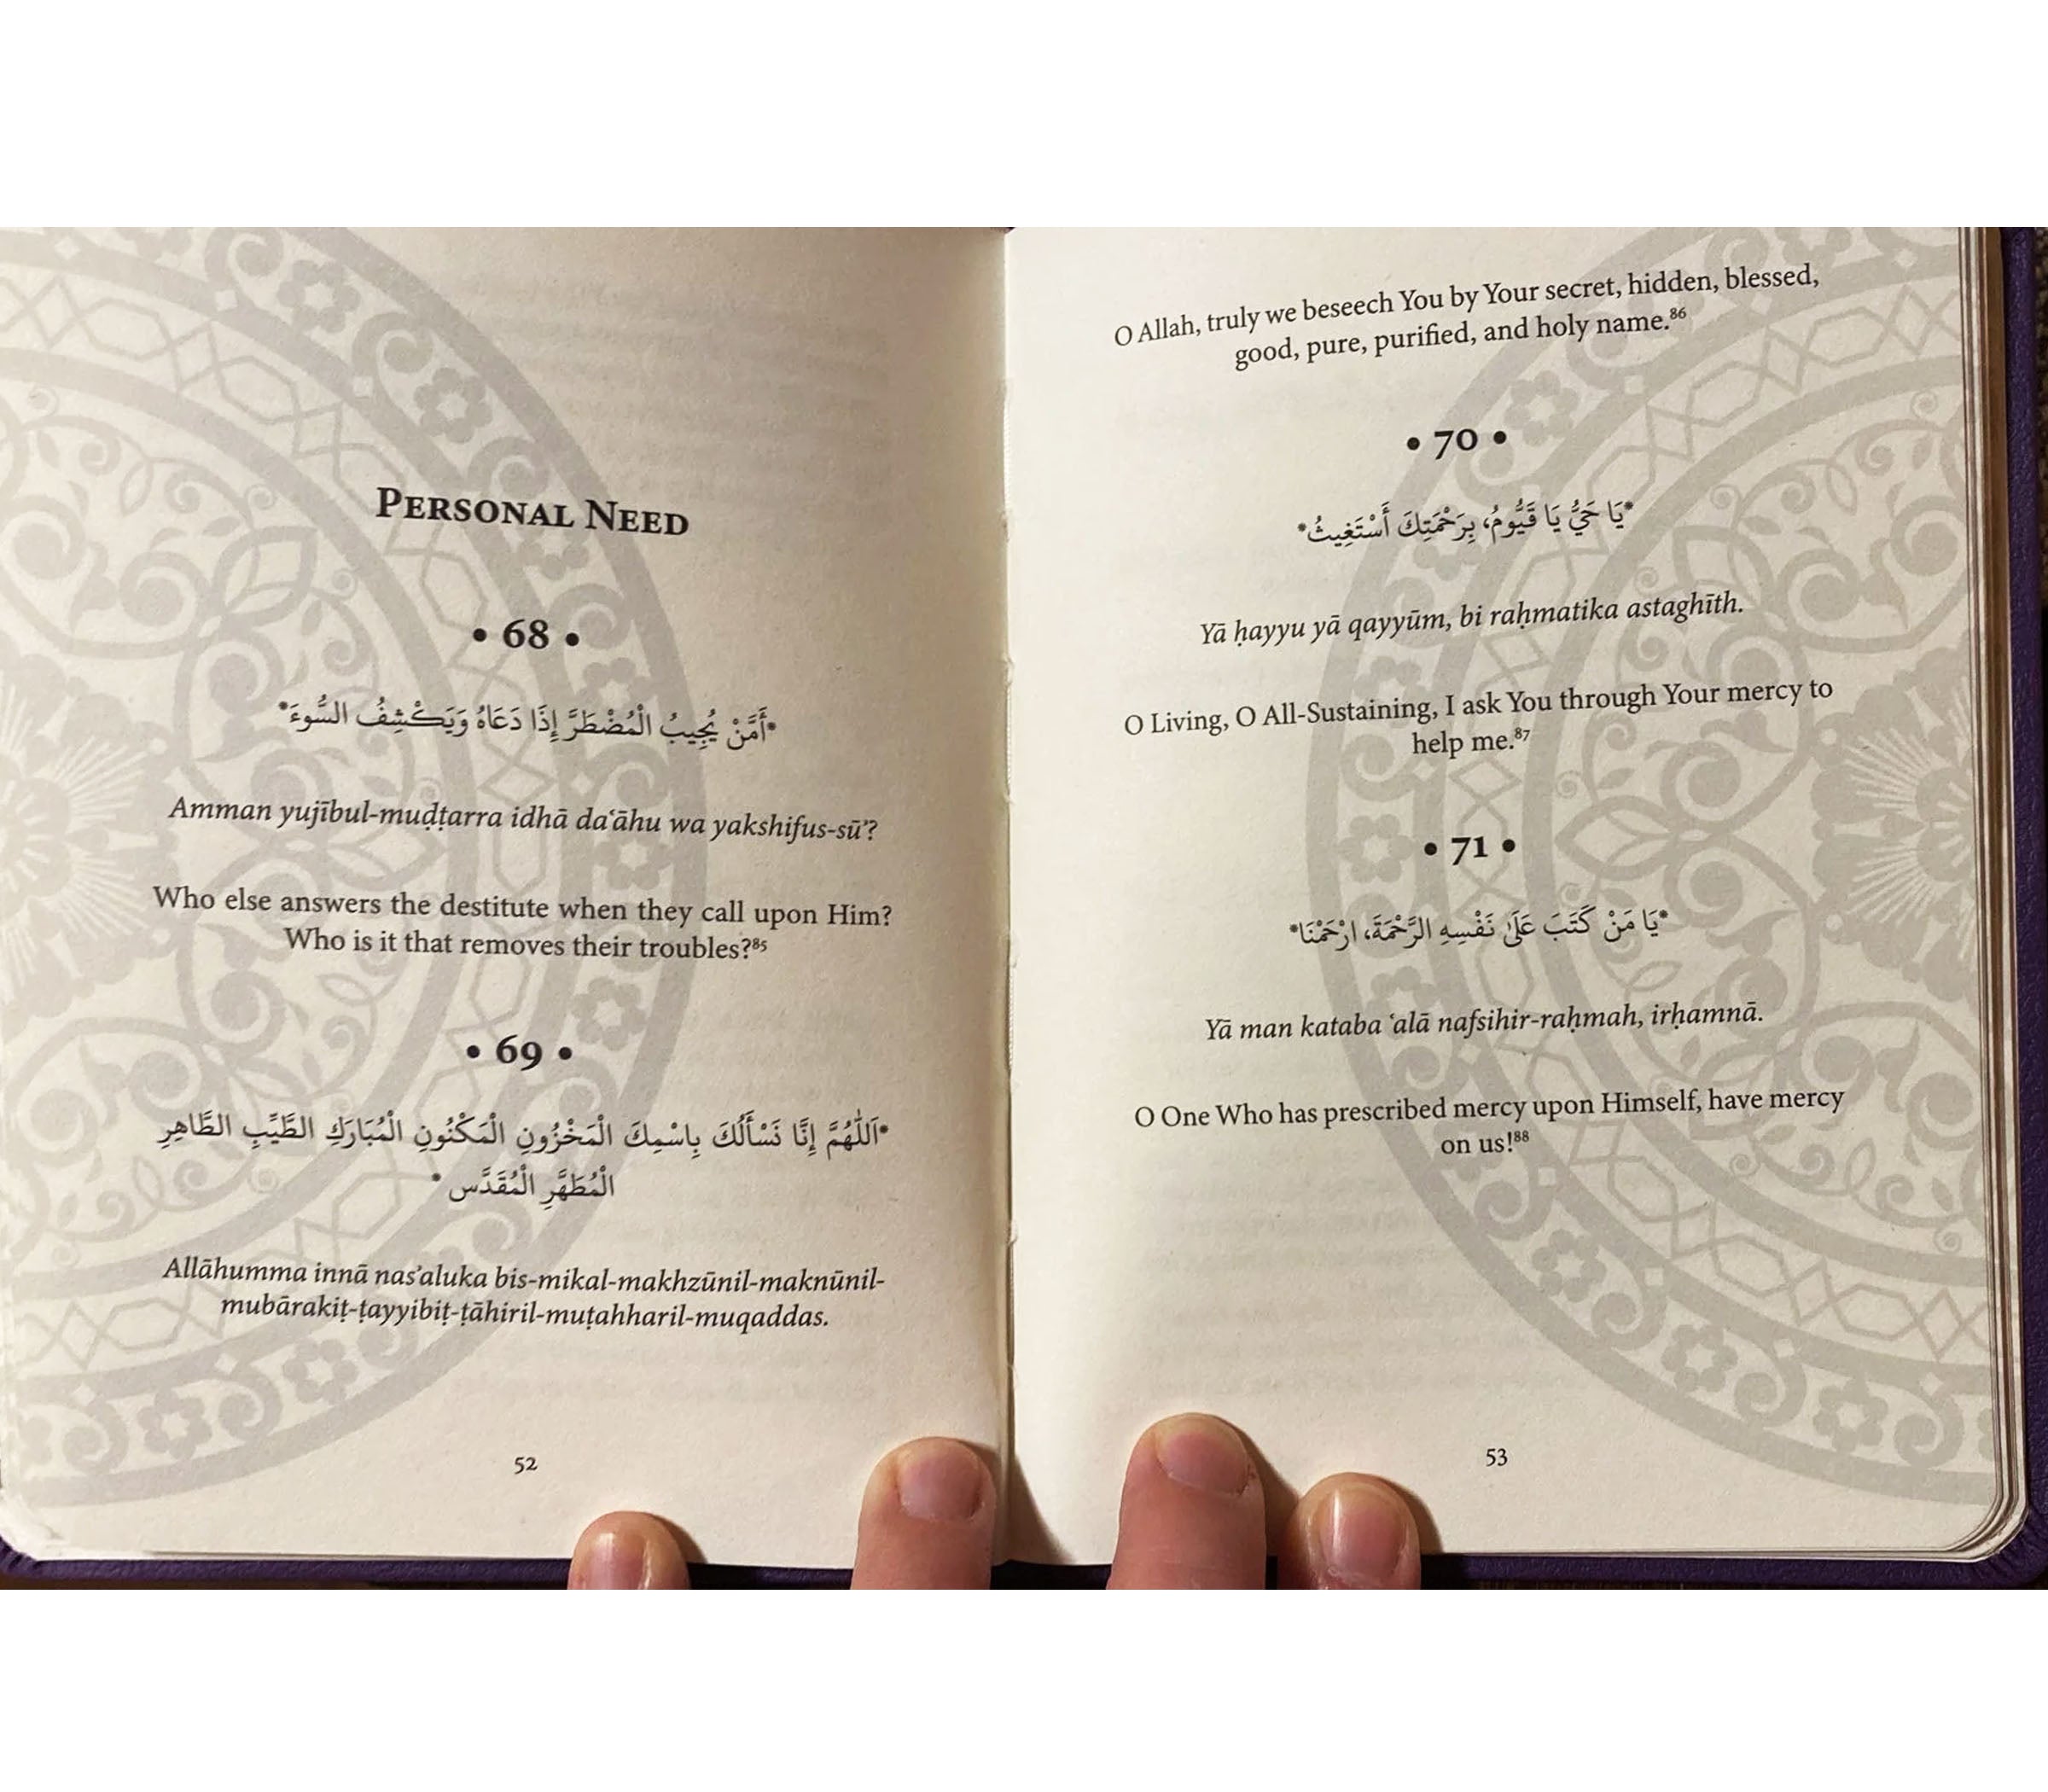 PERSONAL NEED
• 68 •
*أَمَّنْ يُجِيبُ الْمُضْطَرَّ إِذَا دَعَاهُ وَيَكْشِفُ السُّوءَ*
Amman yujībul-muḍṭarra idhā daʿāhu wa yakshifus-sūʾ?
Who else answers the destitute when they call upon Him?
Who is it that removes their troubles?⁸⁵
• 69 •
*اَللّٰهُمَّ إِنَّا نَسْأَلُكَ بِاسْمِكَ الْمَخْزُونِ الْمَكْنُونِ الْمُبَارَكِ الطَّيِّبِ الطَّاهِرِ
الْمُطَهَّرِ الْمُقَدَّس *
Allāhumma innā nasʾaluka bis-mikal-makhzūnil-maknūnil-
mubārakiṭ-ṭayyibiṭ-ṭāhiril-muṭahharil-muqaddas.
52
O Allah, truly we beseech You by Your secret, hidden, blessed,
good, pure, purified, and holy name.⁸⁶
• 70 •
*يَا حَيُّ يَا قَيُّومُ، بِرَحْمَتِكَ أَسْتَغِيثُ*
Yā ḥayyu yā qayyūm, bi raḥmatika astaghīth.
O Living, O All-Sustaining, I ask You through Your mercy to
help me.⁸⁷
• 71 •
*يَا مَنْ كَتَبَ عَلَىٰ نَفْسِهِ الرَّحْمَةَ، ارْحَمْنَا*
Yā man kataba ʿalā nafsihir-raḥmah, irḥamnā.
O One Who has prescribed mercy upon Himself, have mercy
on us!⁸⁸
53